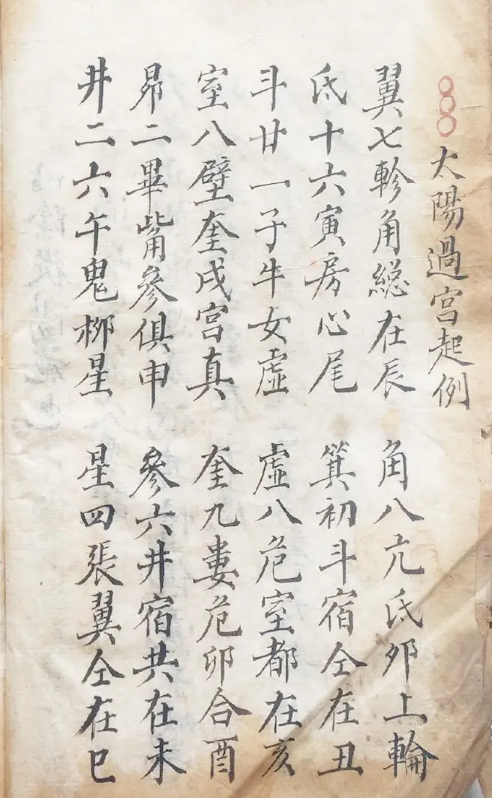 太陽過宮起例
翼七軫角総在辰 角八亢氐夘上輪
氐十六寅房心尾 箕初斗宿仝在丑
斗廿一子牛女虛 虛八危室都在亥
室八壁奎戌宮真 奎九婁危卯合酉
昴二畢觜參俱申 參六井宿共在未
井二六午鬼柳星 星四張翼仝在巳